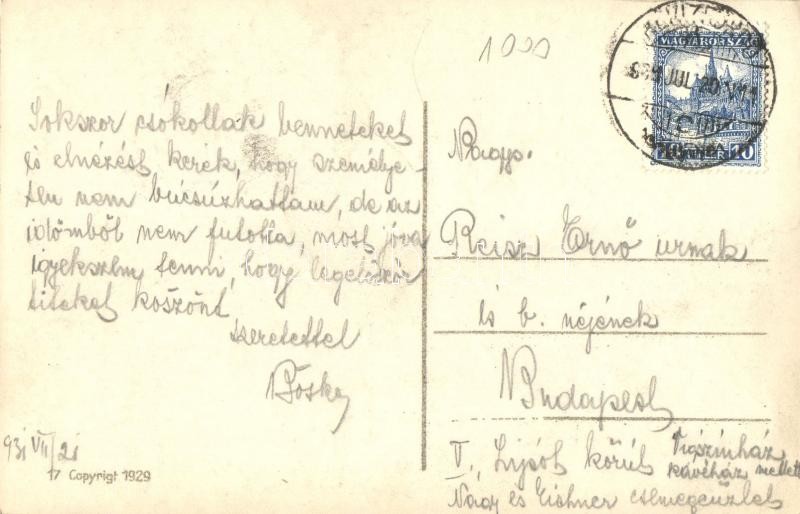 1000
MAGYARORSZÁG
931 JUL 20
10
Sokszor csókollak benneteket
és elnézést kérek, hogy személye-
tem nem búcsúzhattam, de az
időmből nem futotta, most jóvá
igyekszem tenni, hogy legelőször
titeket köszönt
szeretettel
Böske
931 VII/21
17 Copyrigt 1929
Nagys.
Reisz Ernő urnak
és b. nejének
Budapest
V., Lipót körút Vigszínház
kávéház mellett
Nagy és Eichner csemegeüzlet